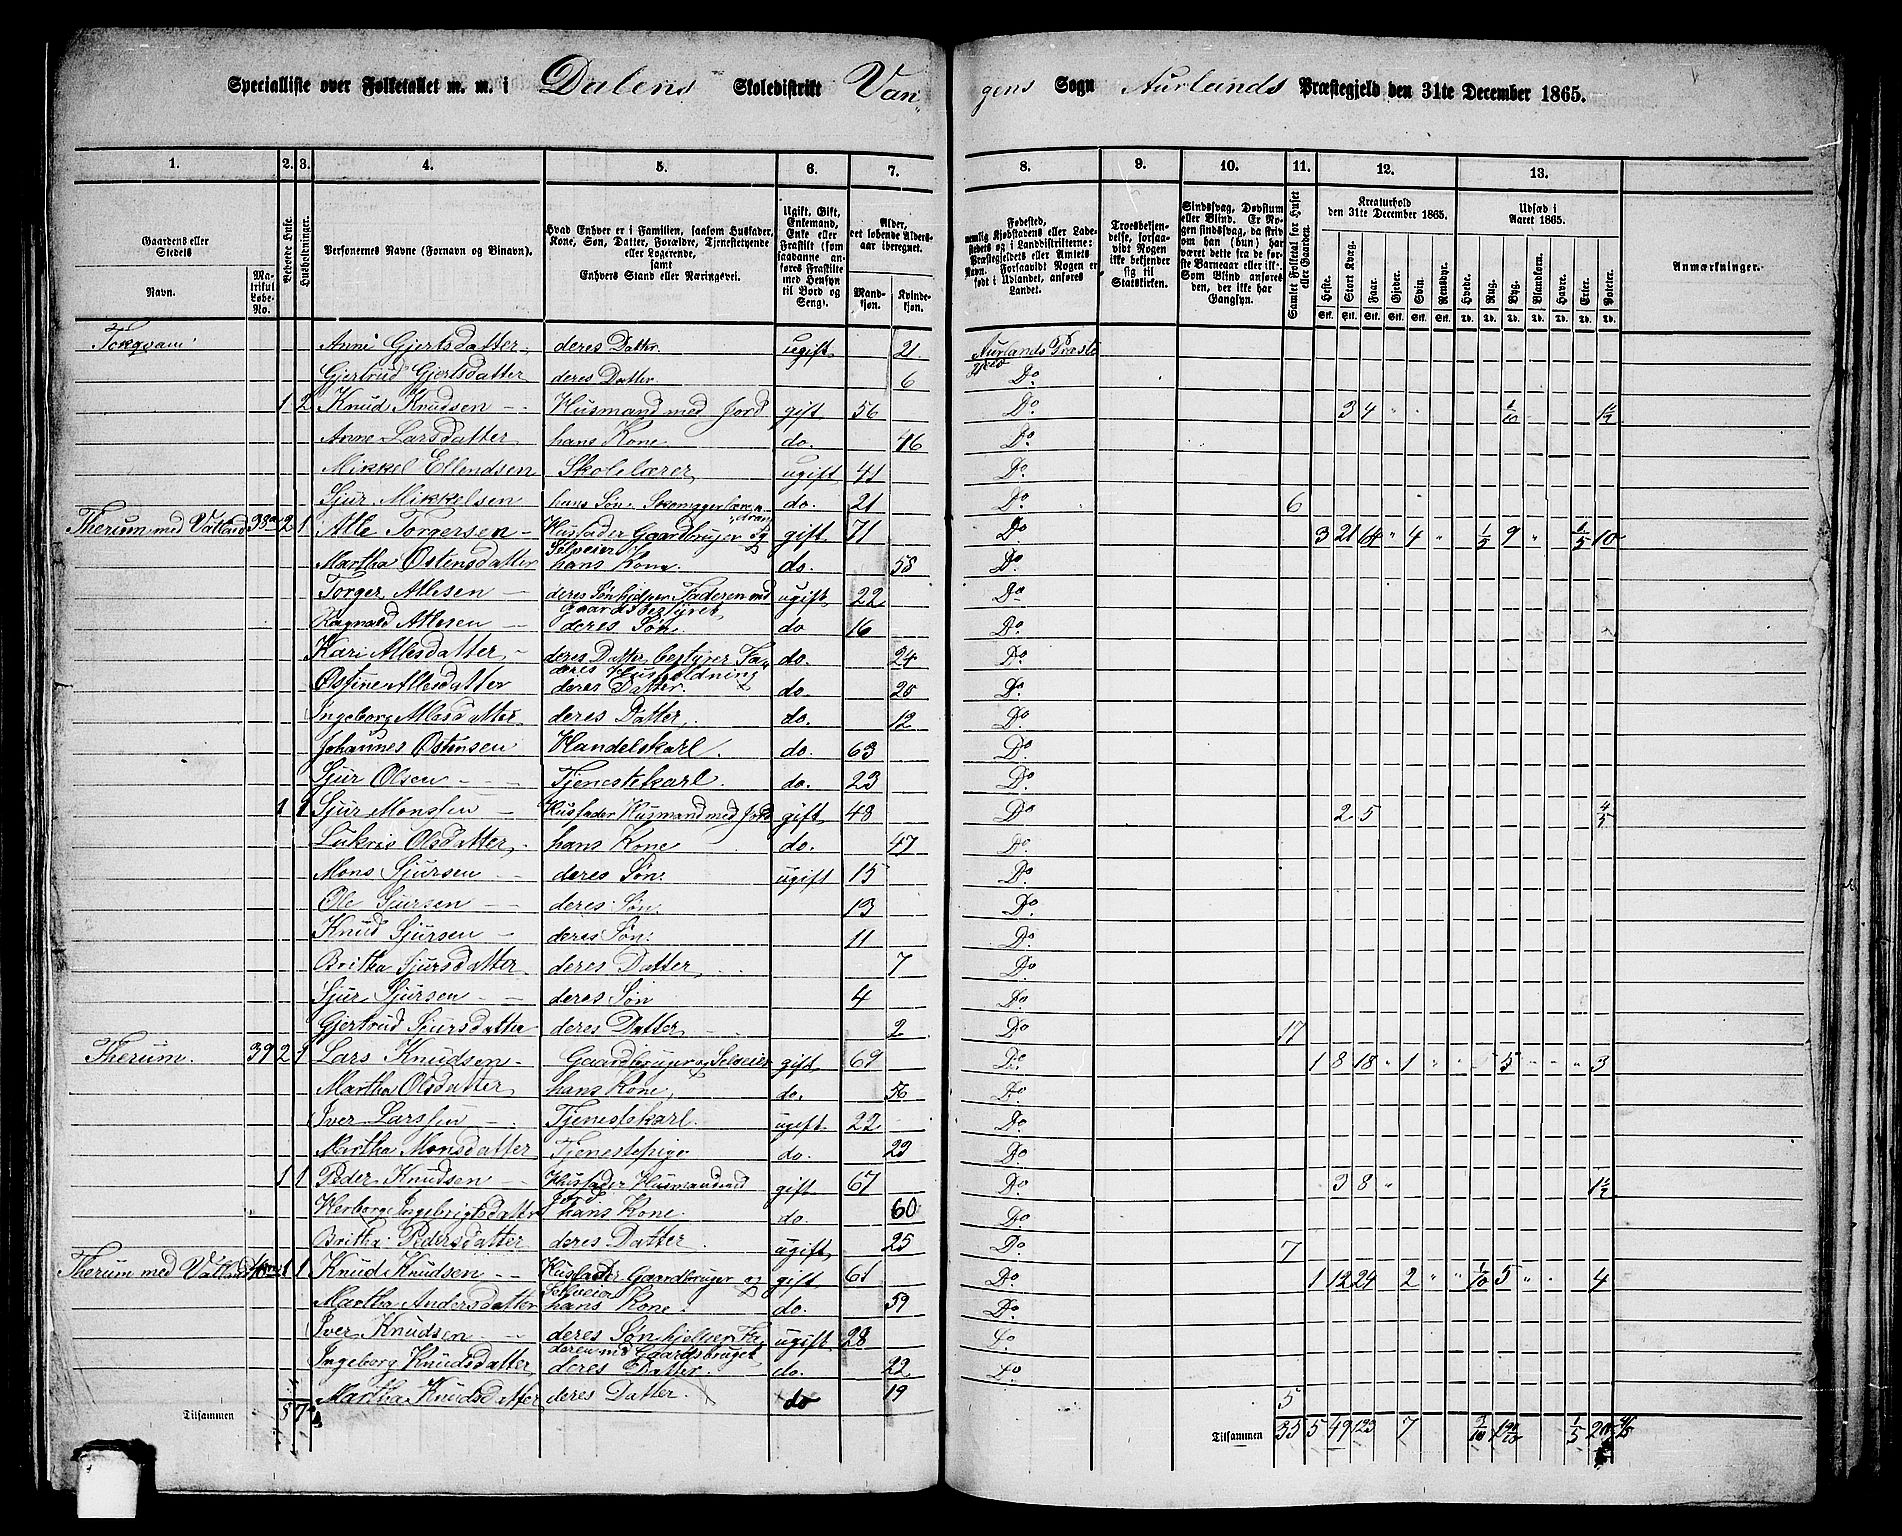 Specialliste over Folketallet m. m. i Dalens Skoledistrikt Van-
gens Sogn Aurlands Præstegjeld den 31te December 1865.
1. 2. 3. 4. 5. 6. 7. 8. 9. 10. 11. 12. 13.
Gaardens eller Stedets
Navn.
Matrikul Løbe-No.
Beboede Huse.
Husholdninger.
Personernes Navne (Fornavn og Binavn).
Hvad Enhver er i Familien, saasom Husfader, Kone, Søn, Datter, Forældre, Tjenestetyende eller Logerende, samt Enhvers Stand eller Næringsvei.
Ugift, Gift, Enkemand, Enke eller Fraskilt (som saadanne anføres Fraskilte med Hensyn til Bord og Seng).
Alder, det løbende Aldersaar iberegnet.
Mandkjøn. Kvindekjøn.
Fødested, nemlig Kjøbstadens eller Ladestedets og i Landdistrikterne: Præstegjeldets eller Amtets Navn. Forsaavidt Nogen er født i Udlandet, anføres Landet.
Troesbekjendelse, forsaavidt Nogen ikke bekjender sig til Statskirken.
Sindssvag, Døvstum eller Blind. Er Nogen sindssvag, da skriv om han (hun) har været dette fra de første Barneaar eller ikke. Som Blind anføres den, der ikke har Gangsyn.
Samlet Folketal for Huset eller Gaarden.
Kreaturhold den 31te December 1865.
Heste. Stort Kvæg. Faar. Gjeder. Svin. Rensdyr.
Udsæd i Aaret 1865.
Hvede. Rug. Byg. Blandkorn. Havre. Erter. Poteter.
Anmærkninger.
Tokqvam Anne Gjertsdatter deres Datter ugift 21 Aurlands Præstegjeld
Gjertrud Gjertsdatter deres Datter 6 Do
1 2 Knud Knudsen Husmand med Jord gift 56 Do 3 4 " 1/10 1 1/2
Anne Larsdatter hans Kone do. 46 Do
Mikkel Ellendsen Skolelærer ugift 41 Do
Sjur Mikkelsen hans Søn. do. 21 Do 6
Therum med Vatland 38a 2 1 Atle Torgersen Husfader Gaardbruger og Selveier gift 71 Do 3 21 64 " 4 " 1/5 9 " 1/5 10
Martha Ostensdatter hans Kone do. 58 Do
Torger Atlesen deres Søn hjelper Faderen med Gaardsbestyret ugift 22 Do
Ragnald Atlesen deres Søn do 16 Do
Kari Atlesdatter deres Datter bestyrer Faderes Husholdning do. 24 Do
Ostine Atlesdatter deres Datter do. 20 Do
Ingeborg Atlesdatter deres Datter do. 12 Do
Johannes Ostensen Handelskarl do. 63 Do
Sjur Olsen Tjenestekarl do. 23 Do
1 1 Sjur Monssen Husfader Husmand med Jord gift 48 Do 2 5 4/5
Lukris Olsdatter hans Kone do. 47 Do
Mons Sjursen deres Søn ugift 15 Do
Ole Sjursen deres Søn 13 Do
Knud Sjursen deres Søn 11 Do
Britha Sjursdatter deres Datter 7 Do
Sjur Sjursen deres Søn 4 Do
Gjertrud Sjursdatter deres Datter 2 Do 17
Therum. 39 2 1 Lars Knudsen Gaardbruger og Selveier gift 69 Do 1 8 18 " 1 " 5 " 3
Martha Olsdatter hans Kone do. 56 Do
Iver Larssen Tjenestekarl ugift 22 Do
Martha Monsdatter Tjenestepige do. 23 Do
1 1 Peder Knudsen Husfader Husmand med Jord gift 67 Do 3 8 " 1 1/2
Herborg Ingebrigtsdatter hans Kone do. 60 Do
Britha Pedersdatter deres Datter ugift 25 Do 7
Therum med Vatland 1 1 Knud Knudsen Husfader Gaardbruger og Selveier gift 61 Do 1 12 24 2 " " 1/10 5 " 4
Martha Andersdatter hans Kone do. 59 Do
Iver Knudsen deres Søn hjelper Faderen med Gaardsbruget ugift 28 do
Ingeborg Knudsdatter deres Datter do. 22 do
Martha Knudsdatter deres Datter do 19 5
Tilsammen 8 7
Tilsammen 35 5 49 123 7 1/5